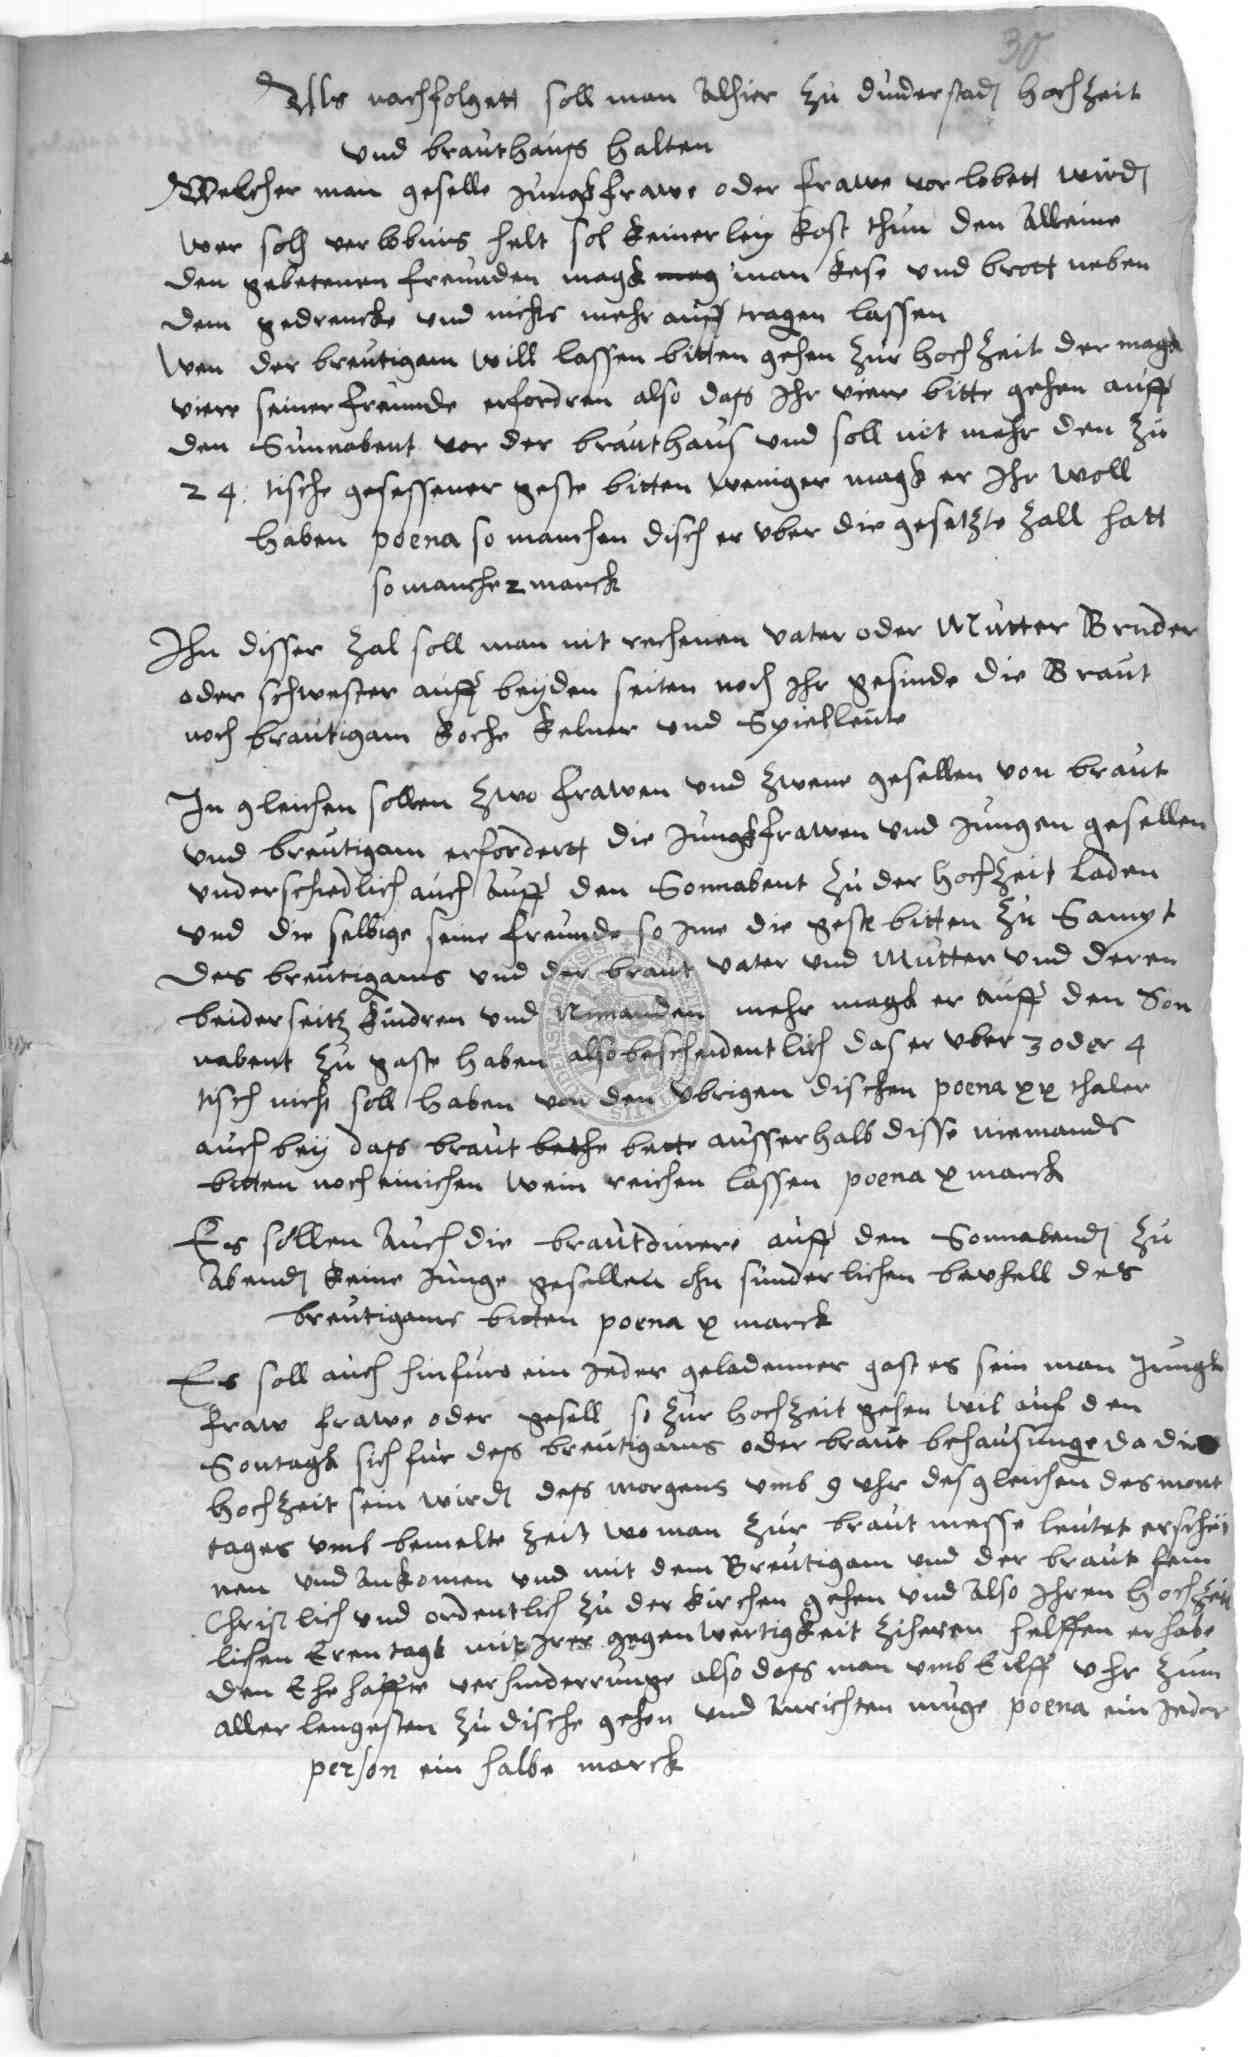 30
Als nachfolgett soll man Alhier zu duderstadt hochzeit
vnd brauthaus halten
Welcher man geselle Jungkfrawe oder frawe vorlobett wirdt
wer solch verlobnis helt sol keinerley kost thun den Alleine
den gebetenen freunden magk man kese vnd brott neben
dem gedrencke vnd nichts mehr auff tragen lassen
Wen der breutigam will lassen bitten gehen zur hochzeit der magk
vier seiner freunde erfordren also dass Ihr vier bitte gehen auff
den Sunnabent vor der brauthaus vnd soll nit mehr den zu
24 tische gesessener geste bitten weniger magk er Ihr woll
haben poena so manchen disch er vber die gesetzte zall hatt
so manche 2 marck
Ihn disser zal soll man nit rechenen vater oder Mutter Bruder
oder schwester auff beyden seiten noch Ihr gesinde die Braut
noch brautigam koche kelner vnd Spielleute
In gleichen sollen zwo frawen vnd zwene gesellen von braut
vnd breutigam erfordertt die Jungkfrawen vnd Jungen gesellen
vnderschiedlich auch auff den Sonnabent zu der hochzeit laden
vnd die selbige seine freunde so Ime die geste bitten zu Sampt
des breutigams vnd der braut vater vnd Mutter vnd deren
beiderseitz kindren vnd Nimanden mehr magk er auff den Son
nabent zu gaste haben also bescheidentlich das er vber 3 oder 4
tisch nicht soll haben von den vbrigen dischen poena xx thaler
auch bey dass braut bethe bette ausserhalb disse niemands
bitten noch einichen wein reichen lassen poena x marck
Es sollen Auch die brautdinere auff den Sonnabendt zu
Abendt keine Junge gesellen ohn sunderlichen bevhell des
breutigams bitten poena x marck
Es soll auch hinfuro ein Jeder geladenner gast es sein man Jungk
fraw frawe oder gesell so zur hochzeit gehen wil auf den
Sontagk sich fur dess breutigams oder braut behausunge da die
hochzeit sein wirdt dess morgens vmb 9 vhr desgleichen des mont
tages vmb bemelte zeit wo man zur braut messe leutet erschei
nen vnd Ankomen vnd mit dem Breutigam vnd der braut fein
Christlich vnd ordentlich zu der kirchen gehen vnd Also Ihren hochzeit
lichen Erentagk mit Irer gegenwertigkeit ziheren helffen er habe
den Ehehaffte verhinderrunge also dass man vmb Eilff vhr zum
aller lengesten zu dische gehen vnd Anrichten muge poena ein Jeder
person ein halbe marck